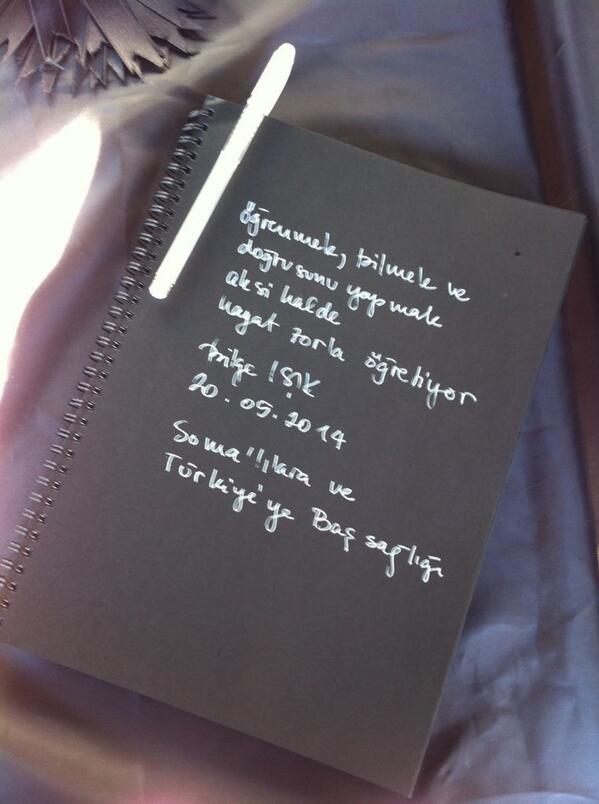 öğrenmek, bilmek ve
doğrusunu yapmak
aksi halde
hayat zorla öğretiyor
Bilge IŞIK
20.05.2014
Soma'lılara ve
Türkiye'ye Baş sağlığı